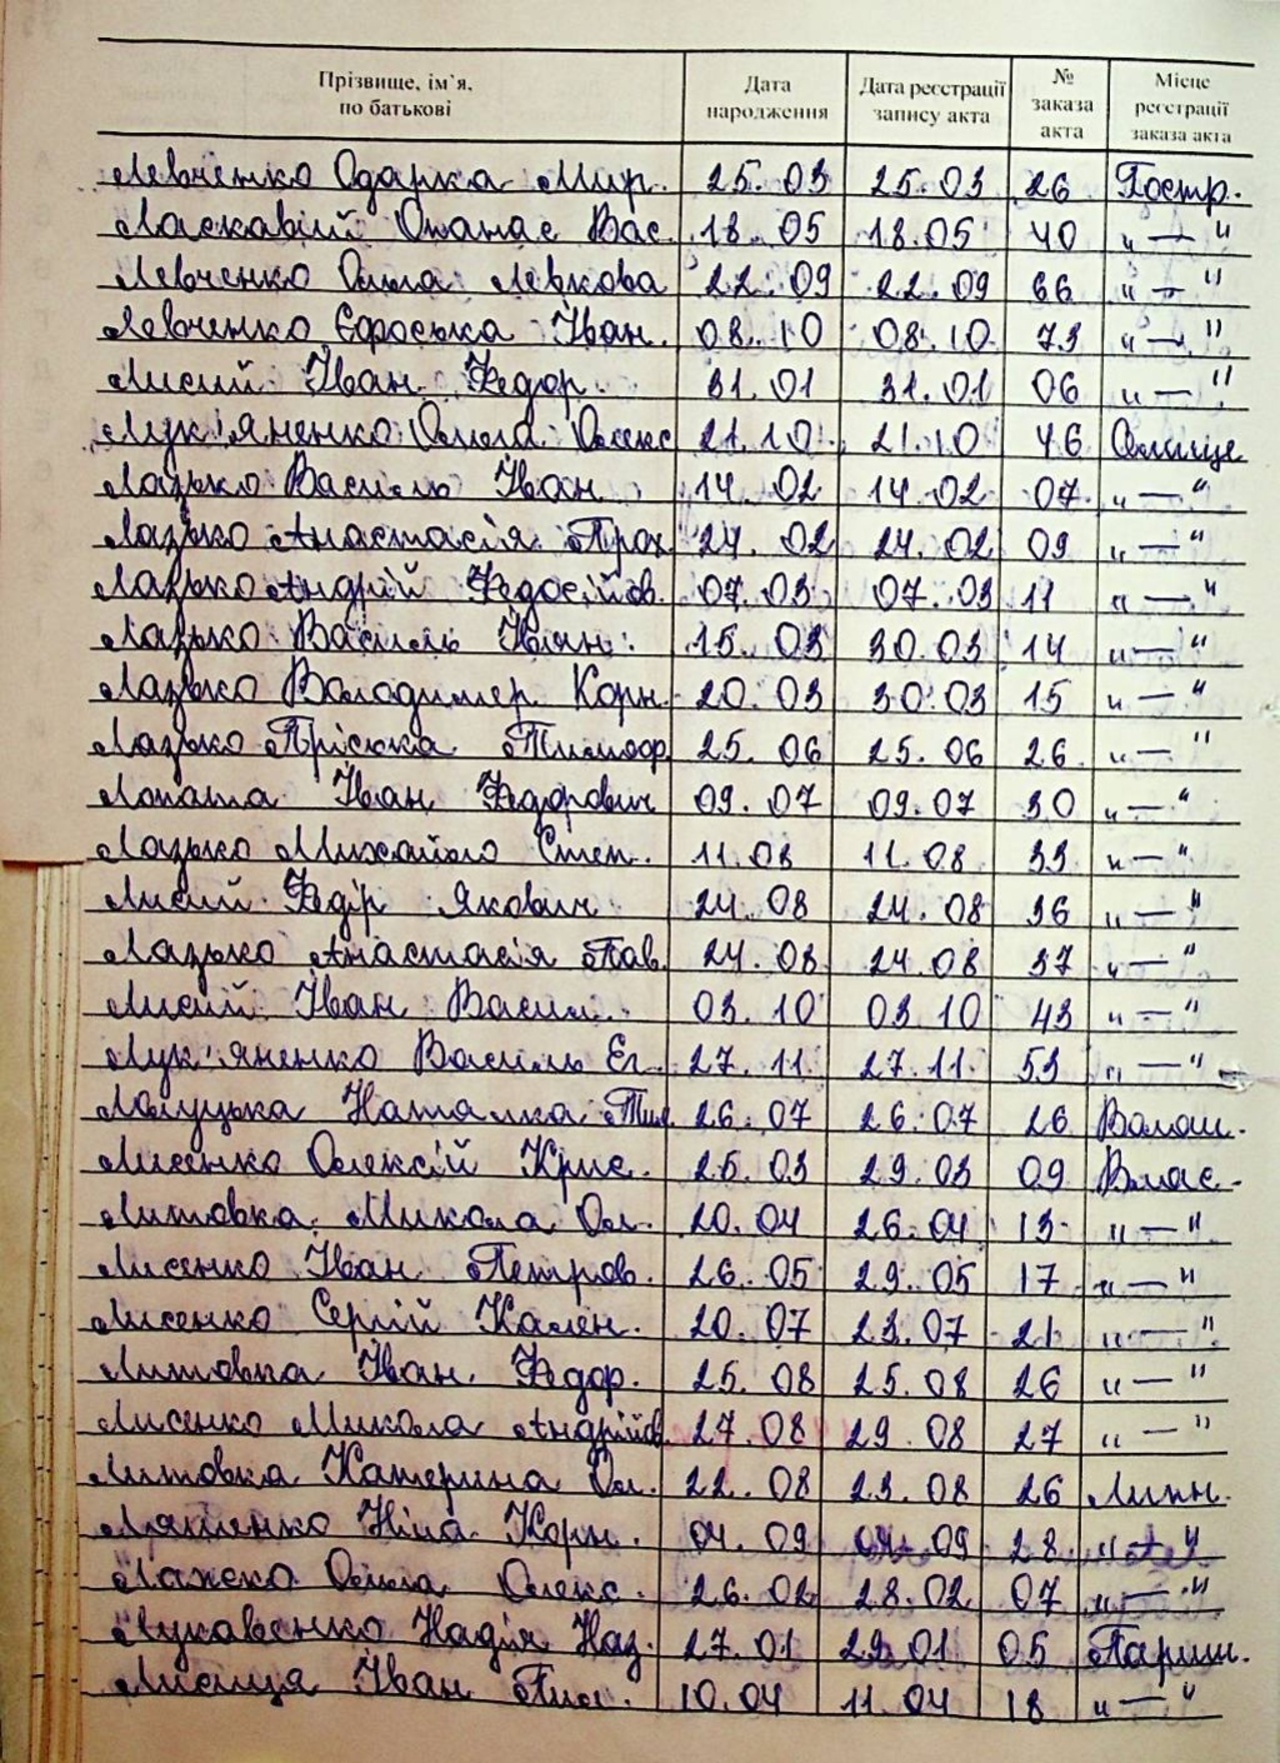 Прізвище, ім`я, по батькові Дата народження Дата реєстрації запису акта № заказа акта Місце реєстрації заказа акта
Левченко Одарка Мир. 25.03 25.03 26 Гостр.
Ласкавий Опанас Вас. 18.05 18.05 40 „—"
Левченко Ольга Левкова 22.09 22.09 66 „—"
Левченко Єфроська Іван. 08.10 08.10 73 „—"
Лисий Іван Федор. 31.01 31.01 06 „—"
Лук'яненко Ольга Олекс 21.10 21.10 46
Лазько Василь Іван. 14.02 14.02 07 „—"
Лазько Анастасія Прох 24.02 24.02 09 „—"
Лазько Андрій Федосійов. 07.03 07.03 11 „—"
Лазько Василь Іван. 15.03 30.03 14 „—"
Лазько Володимер Корн. 20.03 30.03 15 „—"
Лазько Пріська Тимоф 25.06 25.06 26 „—"
Лопата Іван Федорович 09.07 09.07 30 „—"
Лазько Михайло Степ. 11.08 11.08 33 „—"
Лисий Федір Якович 24.08 24.08 36 „—"
Лазько Анастасія Пав. 24.08 24.08 37 „—"
Лисий Іван Васил. 03.10 03.10 43 „—"
Лук'яненко Василь Єг. 27.11 27.11 53 „—"
Наталка Тим. 26.07 26.07 26 Волош.
Лисенко Олексій Крис. 25.03 29.03 09 Влас.
Литовка Микола Ол. 20.04 26.04 13 „—"
Лисенко Іван Петров. 26.05 29.05 17 „—"
Лисенко Сергій Кален. 20.07 23.07 21 „—"
Литовка Іван Федор. 25.08 25.08 26 „—"
Лисенко Микола Андрійов. 27.08 29.08 27 „—"
Литовка Катерина Ол. 22.08 23.08 26 Липн.
Ляшенко Ніна Корн. 04.09 04.09 28 „—"
Ольга Олекс. 26.02 28.02 07 „—"
Надія Наз. 27.01 29.01 05 Париш.
Лисиця Іван Пил. 10.04 11.04 18 „—"